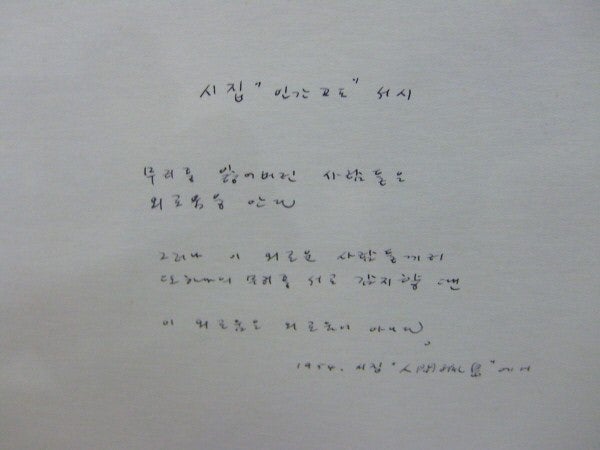 시집 "인간고도" 서시
무리를 잃어버린 사람들은
외로움을 안다
그러나 이 외로운 사람들끼리
또하나의 무리를 서로 감지할 땐
이 외로움도 외로움이 아니다
1954. 시집 "人間孤島"에서